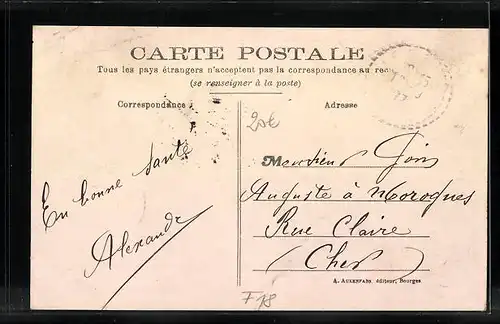 CARTE POSTALE
Tous les pays étrangers n'acceptent pas la correspondance au recto
(se renseigner à la poste)
Correspondance
Adresse
20€
En bonne santé
Alexandre
Monsieur
Auguste à Morogues
Rue Claire
(Cher)
A. AUXENFANS éditeur, Bourges.
F18